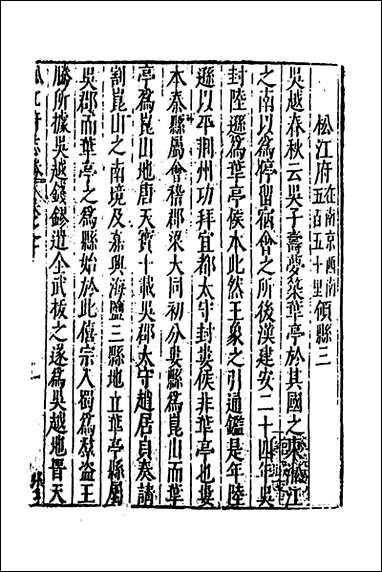 松江府在南京西南五百五十里領縣三
吳越春秋云吳子壽夢築華亭於其國之東松江
之南以為停留宿會之所後漢建安二十四年吳
封陸遜為華亭侯本此然王象之引通鑑是年陸
遜以平荆州功拜宜都太守封婁侯非華亭也婁
本秦縣屬會稽郡梁大同初分婁縣為崑山而華
亭為崑山地唐天寶十載吳郡太守趙居自奏請
割崑山之南境及嘉興海鹽三縣地立華亭縣屬
吳郡而華亭之為縣始於此僖宗入蜀為羣盜王
騰所據吳越錢鏐遣全武拔之遂為吳越地晋天